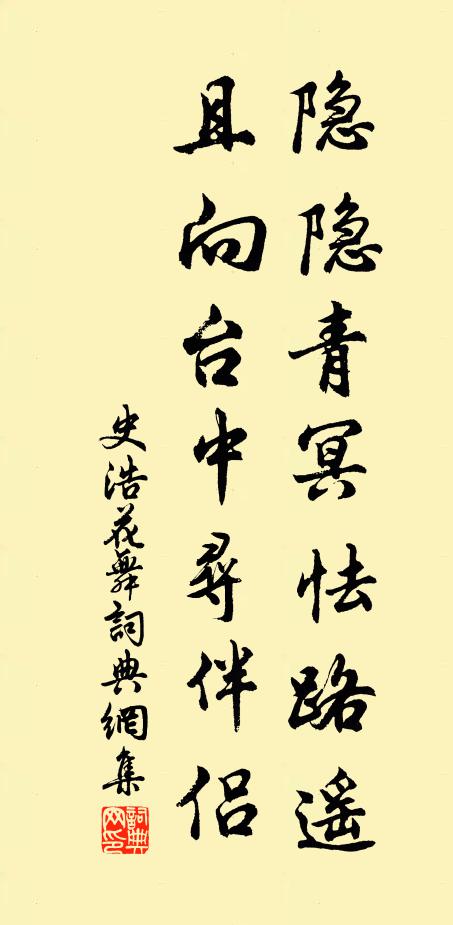 隐隐青冥怯路遥
且向台中寻伴侣
史浩花舞詞典網集
詞典
网印